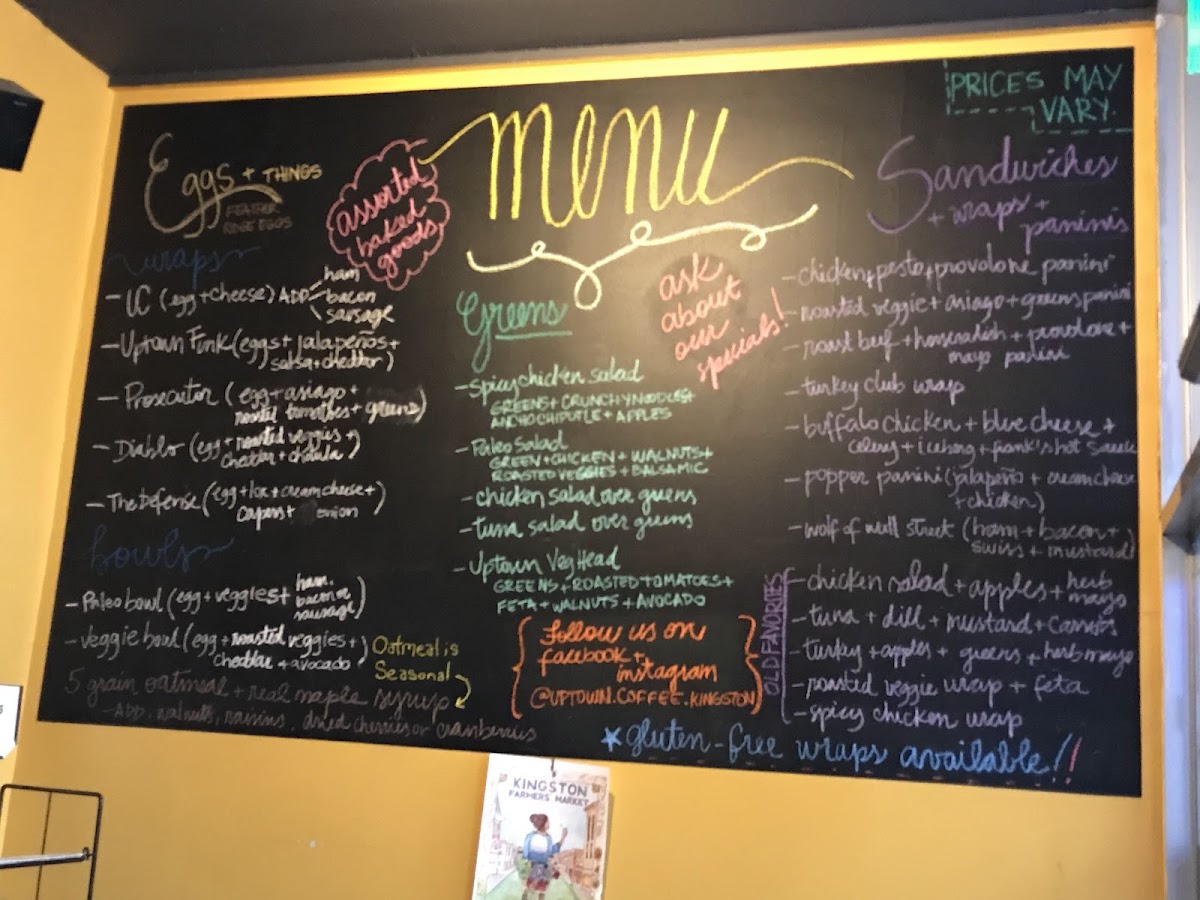 PRICES MAY
VARY.
menu
Eggs + THINGS
FEATHER
RIDGE EGGS
assorted
baked
goods
wraps
- UC (egg + cheese) ADD ham
bacon
sausage
- Uptown Funk (eggs + jalapeños +
salsa + cheddar)
- Prosecutor (egg + asiago +
roasted tomatoes + greens)
- Diablo (egg + roasted veggies +
cheddar + cholula)
- The Defense (egg + lox + cream cheese +
capers + onion
bowls
- Paleo bowl (egg + veggies + ham,
bacon or
sausage)
- Veggie bowl (egg + roasted veggies +
cheddar + avocado)
Oatmeal is
Seasonal
5 grain oatmeal + real maple syrup
- ADD. walnuts, raisins, dried cherries or cranberries
Greens
ask
about
our
specials!
- spicy chicken salad
GREENS + CRUNCHY NOODLES +
ANCHO CHIPOTLE + APPLES
- Paleo Salad
GREEN + CHICKEN + WALNUTS +
ROASTED VEGGIES + BALSAMIC
- chicken salad over greens
- tuna salad over greens
- Uptown Veg Head
GREENS + ROASTED TOMATOES +
FETA + WALNUTS + AVOCADO
Follow us on
facebook +
instagram
@UPTOWN.COFFEE.KINGSTON
Sandwiches
+ wraps +
paninis
- chicken + pesto + provolone panini
- roasted veggie + asiago + greens panini
- roast beef + horseradish + provolone +
mayo panini
- turkey club wrap
- buffalo chicken + blue cheese +
celery + iceberg + frank's hot sauce
- popper panini (jalapeño + cream cheese
+ chicken)
- wolf of wall street (ham + bacon +
swiss + mustard)
OLD FAVORITES
- chicken salad + apples + herb
mayo
- tuna + dill + mustard + carrots
- turkey + apples + greens + herb mayo
- roasted veggie wrap + feta
- spicy chicken wrap
* gluten-free wraps available!!
KINGSTON
FARMERS MARKET